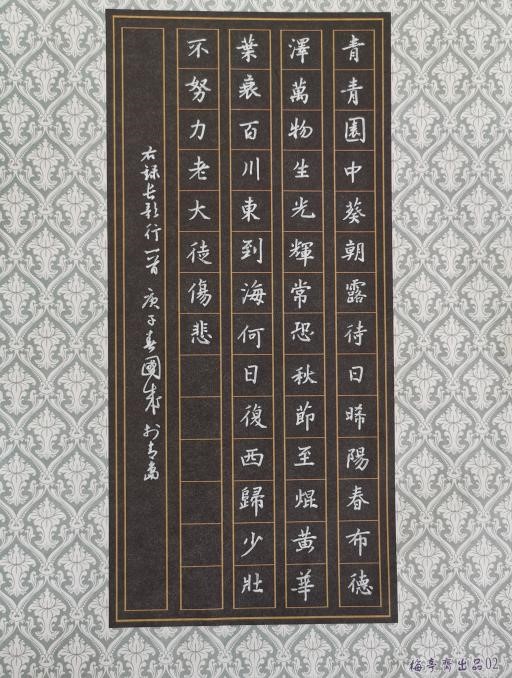 青青園中葵朝露待日晞陽春布德
澤萬物生光輝常恐秋節至焜黃華
葉衰百川東到海何日復西歸少壯
不努力老大徒傷悲
右録長歌行一首 庚子春國成於青島
梅亭齋出品02